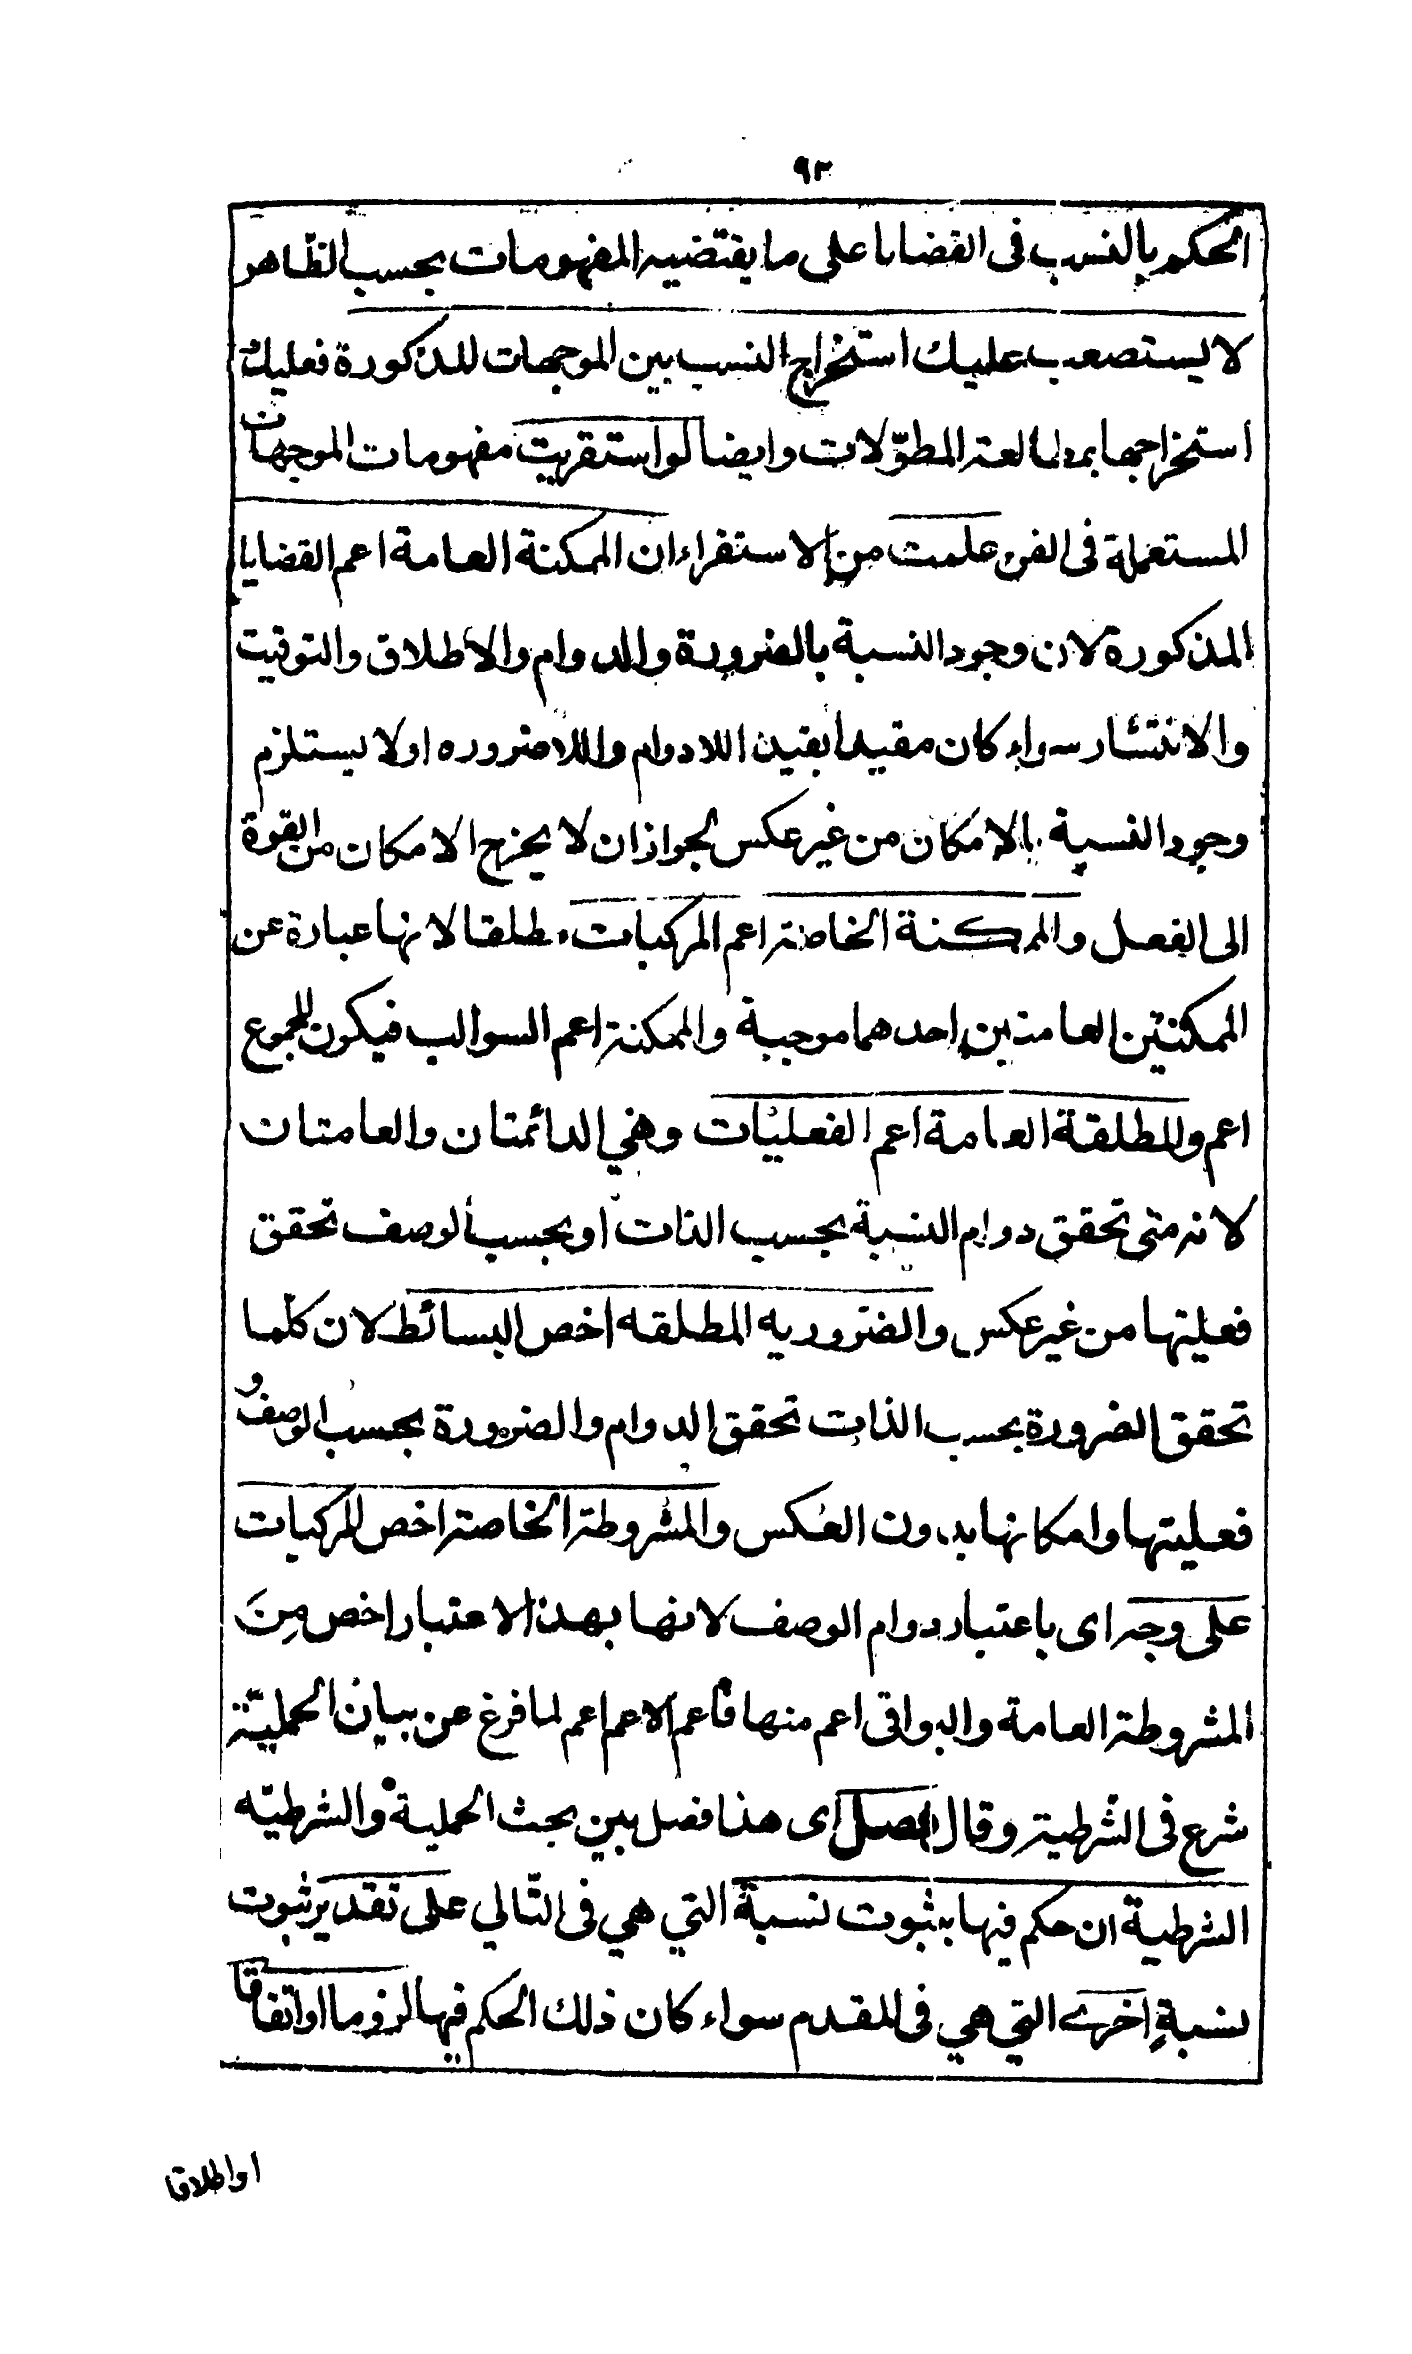 ٩٣
الحكم بالنسب فى القضايا على ما يقتضيه المفهومات بحسب الظاهر
لا يستصعب عليك استخراج النسب بين الموجهات المذكورة فعليك
استخراجها بمطالعة المطوّلات وايضا لو استقريت مفهومات الموجهات
المستعملة فى الفن علمت من الاستقراء ان الممكنة العامة اعم القضايا
المذكورة لان وجود النسبة بالضرورة والدوام والاطلاق والتوقيت
والانتشار سواء كان مقيدا بقيد اللادوام واللاضروره اولا يستلزم
وجود النسبة بالامكان من غير عكس لجواز ان لا يخرج الامكان من القوة
الى الفعل والممكنة الخاصة اعم المركبات مطلقا لانها عبارة عن
الممكنتين العامتين احدهما موجبة والممكنة اعم السوالب فيكون المجموع
اعم والمطلقة العامة اعم الفعليات وهي الدائمتان والعامتان
لانه متى تحقق دوام النسبة بحسب الذات او بحسب الوصف تحقق
فعليتها من غير عكس والضروريه المطلقه اخص البسائط لان كلّما
تحقق الضرورة بحسب الذات تحقق الدوام والضرورة بحسب الوصف و
فعليتها وامكانها بدون العكس والمشروطة الخاصة اخص المركبات
على وجه اى باعتبار دوام الوصف لانها بهذا الاعتبار اخص مِنَ
المشروطة العامة والبواقى اعم منها فاعم الاعم اعم لما فرغ عن بيان الحمليّة
شرع فى الشرطية وقال فصل اى هذا فصل بين بحث الحملية والشرطيّه
الشرطية ان حكم فيها بثبوت نسبة التي هي فى التّالي على تقدير ثبوت
نسبةٍ اخرے التي هي فى المقدم سواء كان ذلك الحكم فيها لزوما او اتفاقا
او اطلاقا